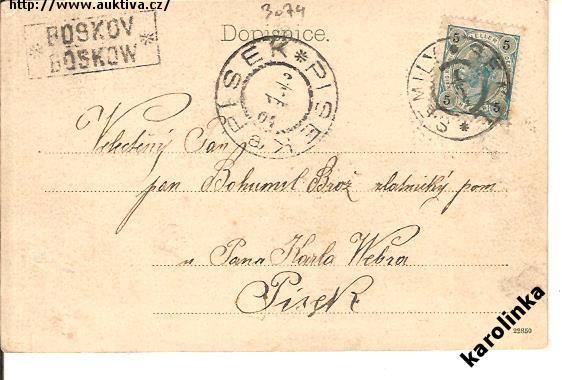 zdroj: http://www.auktiva.cz/
3074
BOSKOV
BOSKOW
Dopisnice.
PISEK * PISEK
SEMILY
5 5
5 5
Velectěný Pan
pan Bohumil Brož zlatnický pom
u Pana Karla Webra
Písek
22850
karolinka